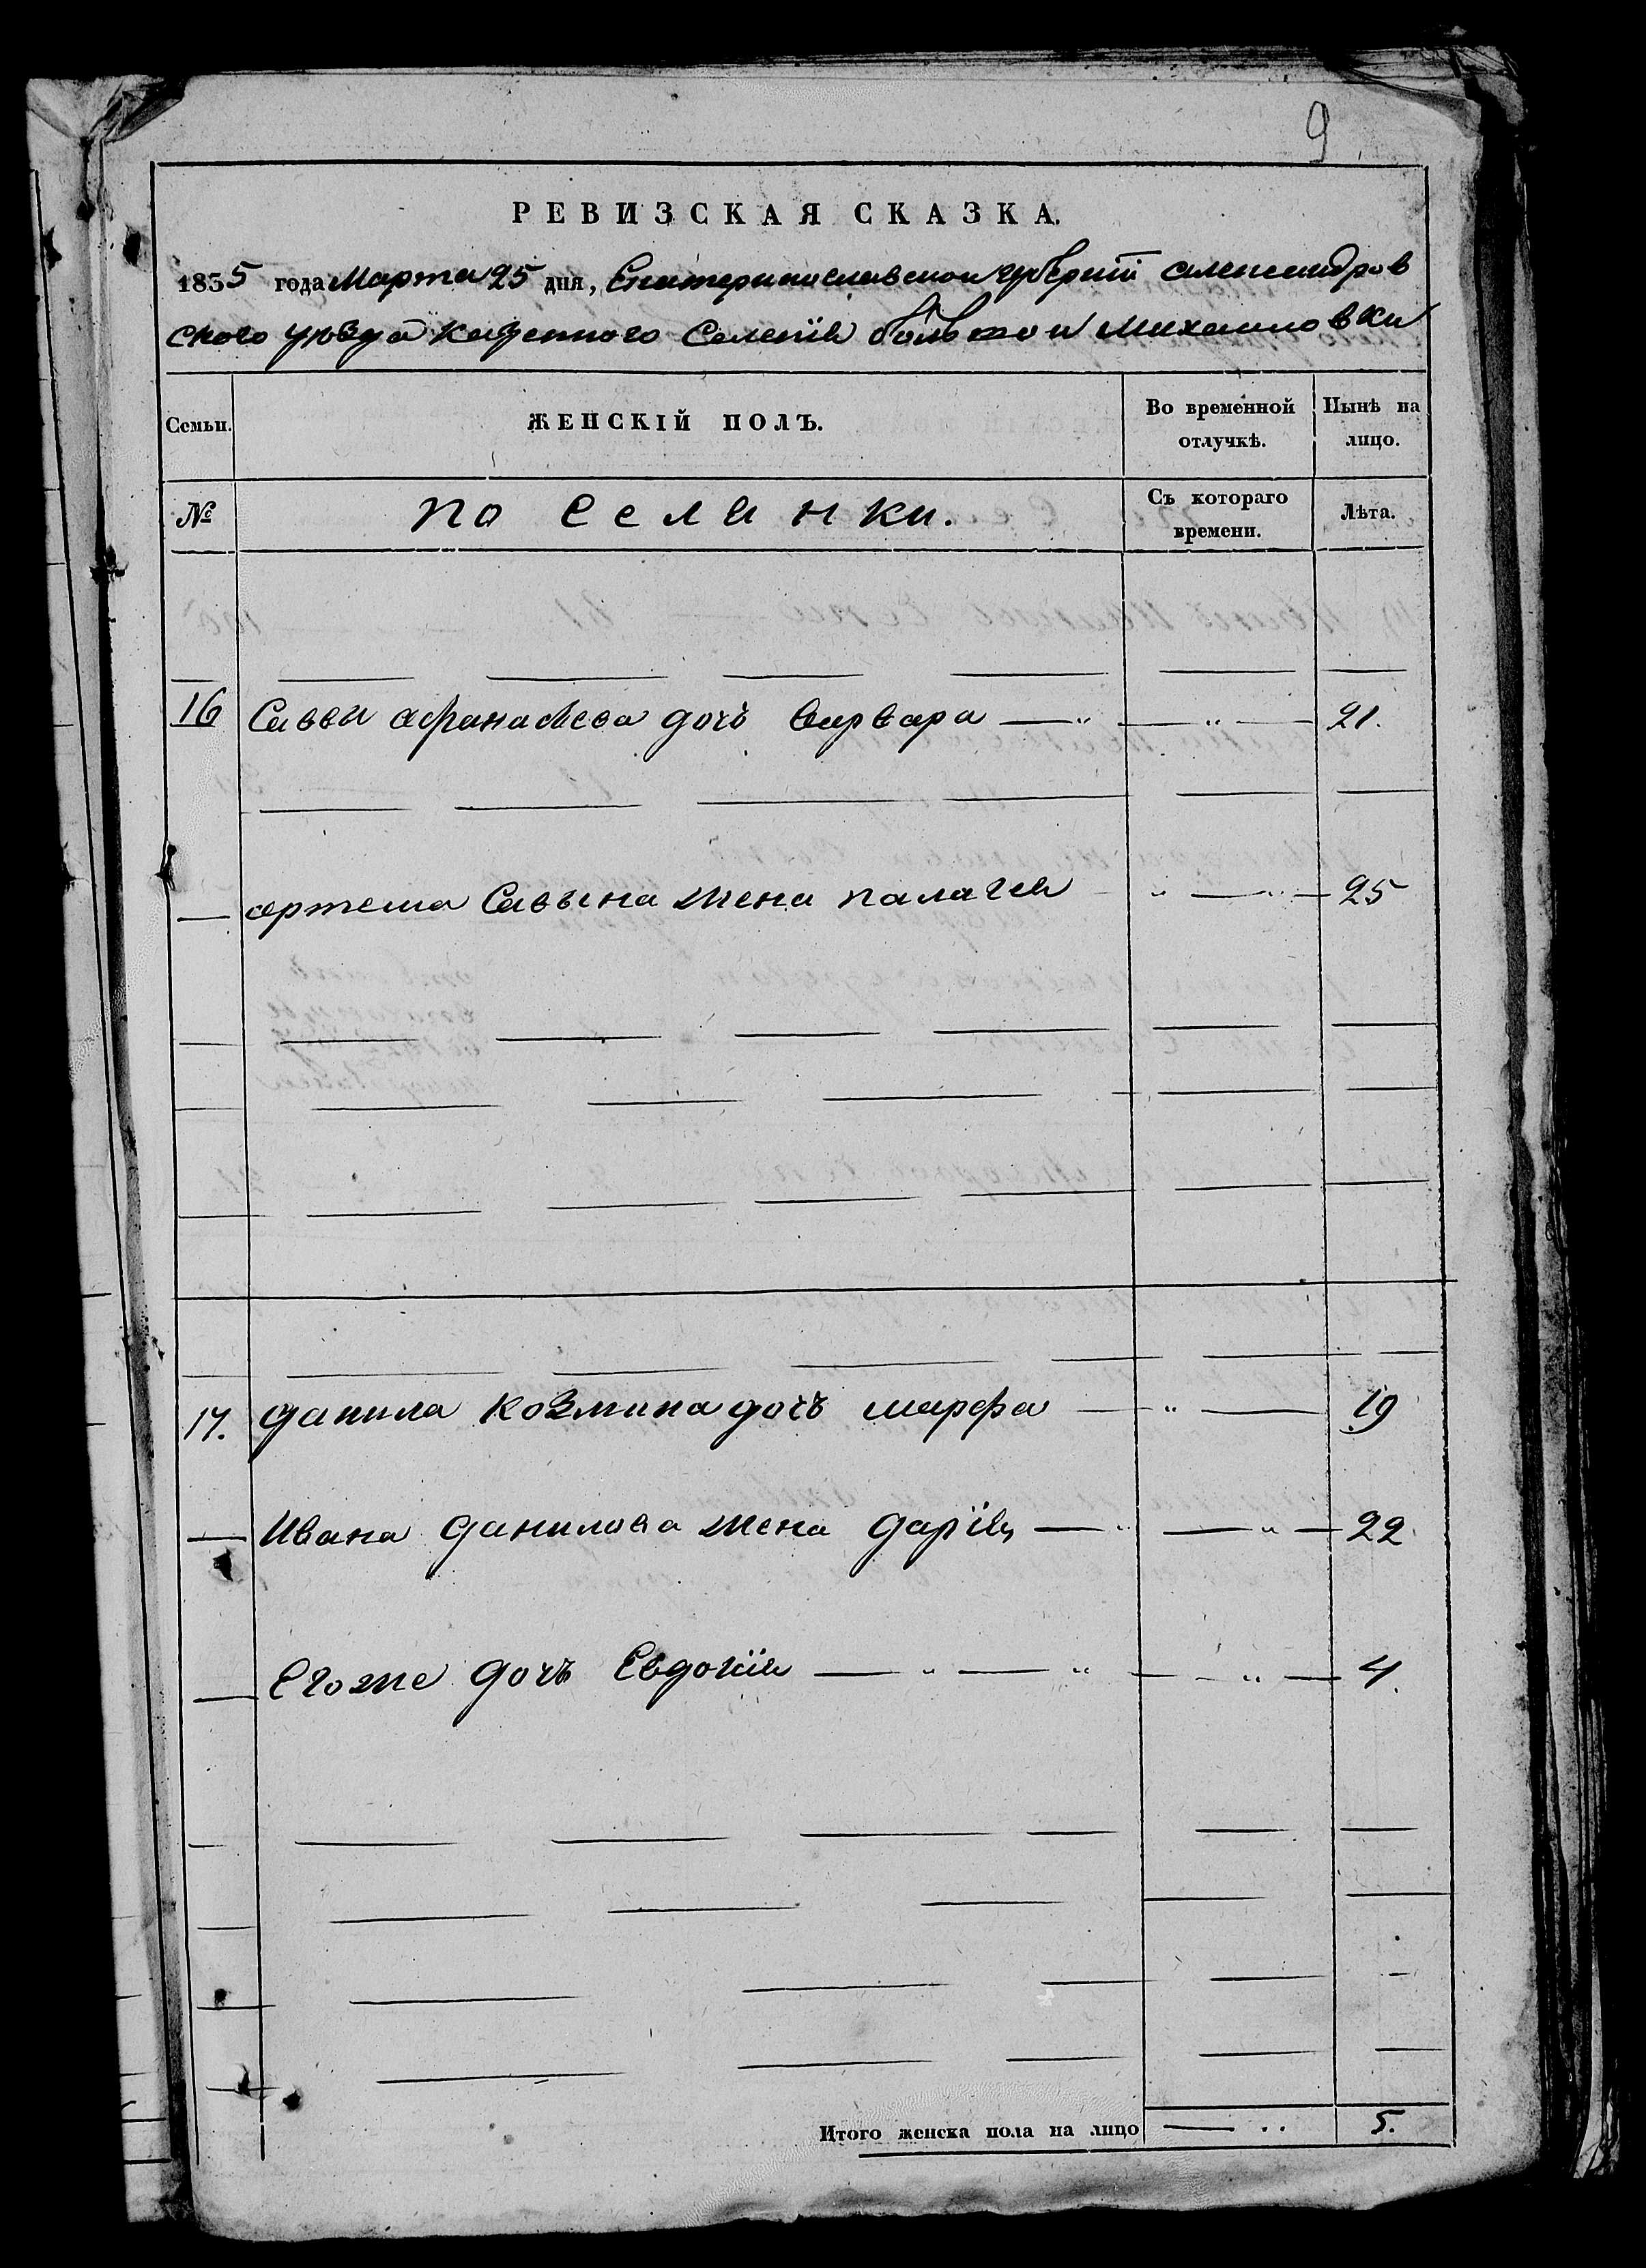 9
РЕВИЗСКАЯ СКАЗКА.
1835 года Марта 25 дня, Екатеринославской губернiи александров
ского уѣзда казенного Селенiя большои Михаиловки
Семьи. ЖЕНСКIЙ ПОЛЪ. Во временной отлучкѣ. Нынѣ на лицо.
№ поселянки. Съ котораго времени. Лѣта.
16 Саввы афанасьева дочь варвара — " — " — 21.
— артема Савына жена палагея " — " — 25
17. данила козмина дочъ марфа — " — 19
— Ивана данилова жена дарiя — " — " — 22
— Егоже дочъ Евдокiя — " — " — " — 4.
Итого женска пола на лицо — " 5.